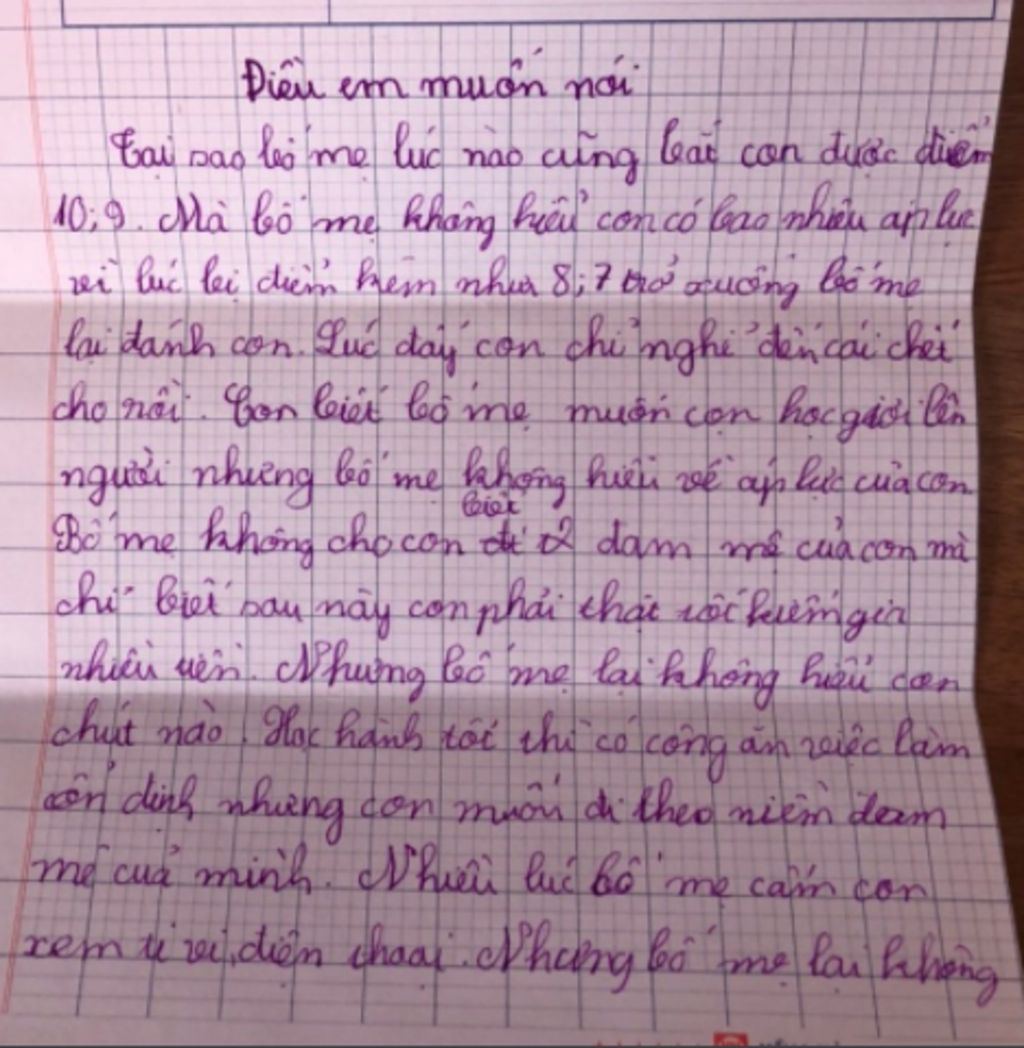 Điều em muốn nói
Tại sao bố mẹ lúc nào cũng bắt con được điểm
10; 9. Mà bố mẹ không hiểu con có bao nhiêu áp lực
vì lúc bị điểm kém như 8; 7 trở xuống bố mẹ
lại đánh con. Lúc đấy con chỉ nghĩ đến cái chết
cho rồi. Con biết bố mẹ muốn con học giỏi lên
người nhưng bố mẹ không hiểu về áp lực của con
biết
Bố mẹ không cho con đam mê của con mà
chỉ biết sau này con phải thật tốt kiếm
nhiều tiền. Nhưng bố mẹ lại không hiểu con
chút nào. Học hành tốt thì có công ăn việc làm
ổn định nhưng con muốn đi theo niềm đam
mê của mình. Nhiều lúc bố mẹ cấm con
xem ti vi, điện thoại. Nhưng bố mẹ lại không